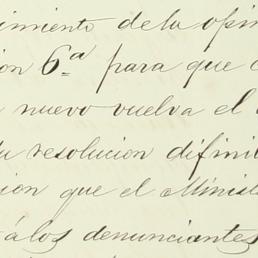 imiento de la opin
ion 6.a para que
nuevo vuelva el
su resolucion difini
cion que el Minist
á los denunciantes